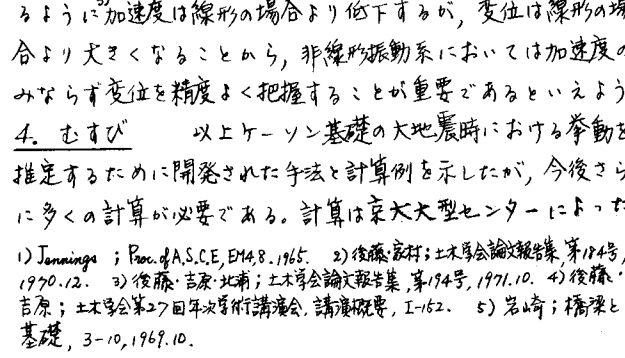 るように加速度は線形の場合より低下するが，変位は線形の場
合より大きくなることから，非線形振動系においては加速度の
みならず変位を精度よく把握することが重要であるといえよう
4. むすび　　以上ケーソン基礎の大地震時における挙動を
推定するために開発された手法と計算例を示したが，今後さら
に多くの計算が必要である。計算は京大大型センターによった
1) Jennings ; Proc. of A,S,C,E, EM4,8. 1965. 2) 後藤・家村；土木学会論文報告集，第184号，
1970.12. 3) 後藤・吉原・北浦；土木学会論文報告集，第194号，1971.10. 4) 後藤・
吉原；土木学会第27回年次学術講演会，講演概要，I-152. 5) 岩崎；橋梁と
基礎，3-10, 1969.10.